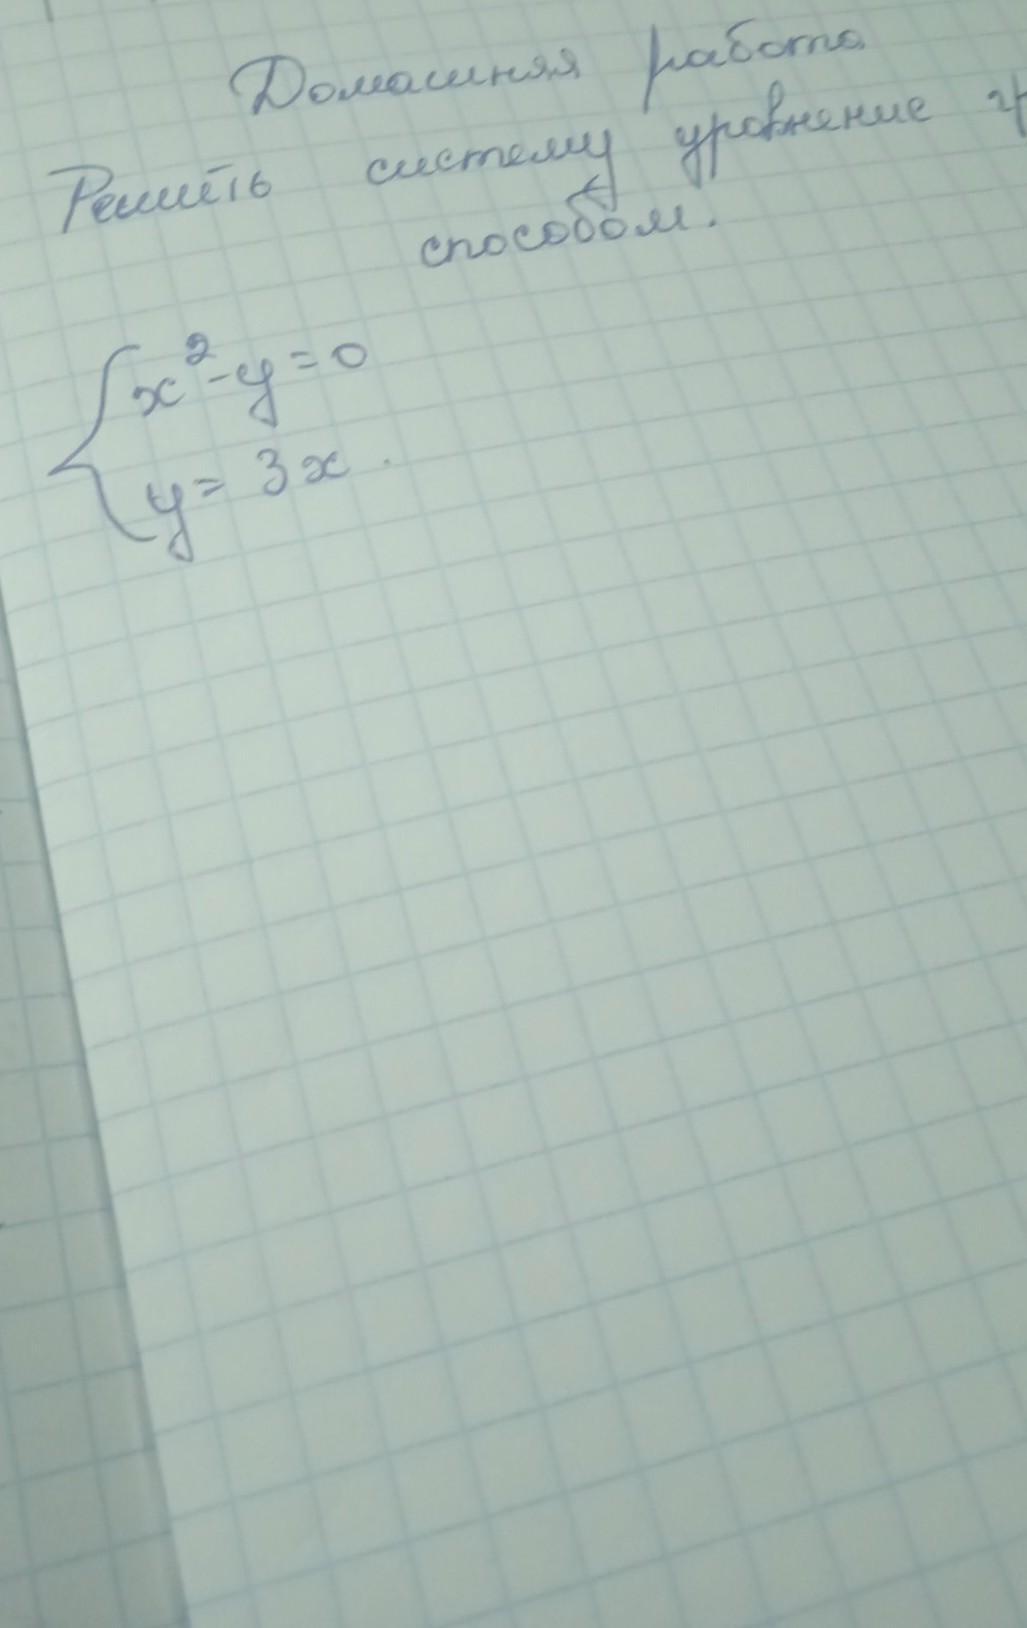 Домашняя работа
Решить систему уровнение
способом.
x²-y=0
y= 3x.